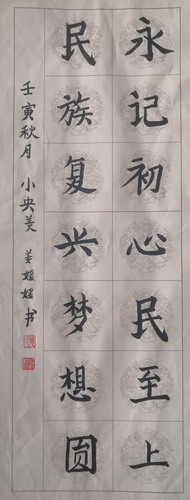 永记初心民至上
民族复兴梦想圆
壬寅秋月 小央美 姜媛媛书